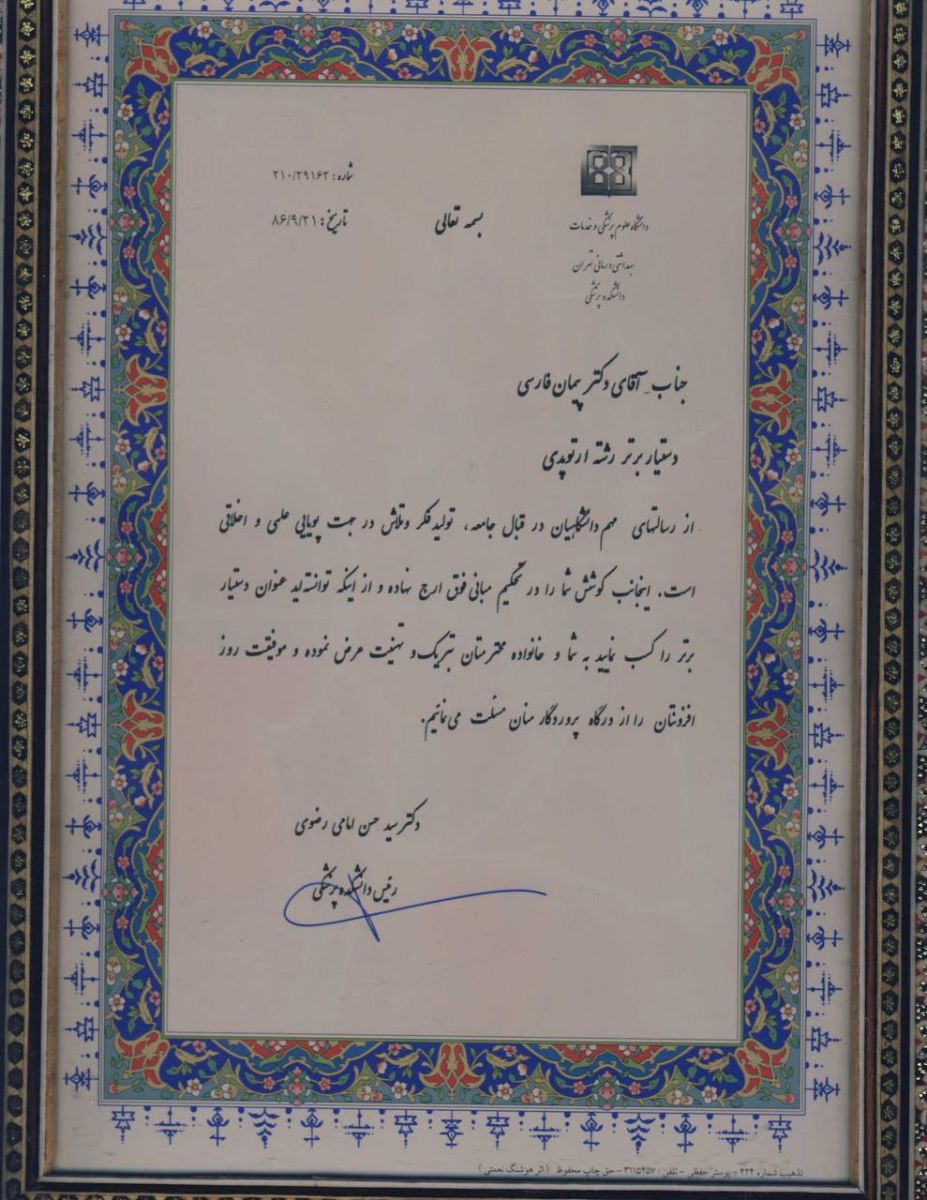 شماره: ۲۱۰/۲۹۱۶۲
تاریخ: ۸۶/۹/۲۱
بسمه تعالی
دانشگاه علوم پزشکی و خدمات
بهداشتی درمانی تهران
دانشکده پزشکی
جناب آقای دکتر پیمان فارسی
دستیار برتر رشته ارتوپدی
از رسالتهای مهم دانشگاهیان در قبال جامعه، تولید فکر و تلاش در جهت پویایی علمی و اخلاقی
است. اینجانب کوشش شما را در تحکیم مبانی فوق ارج نهاده و از اینکه توانسته‌اید عنوان دستیار
برتر را کسب نمایید به شما و خانواده محترمتان تبریک و تهنیت عرض نموده و موفقیت روز
افزونتان را از درگاه پروردگار منان مسئلت می‌نمائیم.
دکتر سید حسن امامی رضوی
رئیس دانشکده پزشکی
تذهیب شماره ۴۲۴ - پوستر حفظی - تلفن: ۳۱۱۵۴۵۷ - حق چاپ محفوظ (اثر هوشنگ نعمتی)